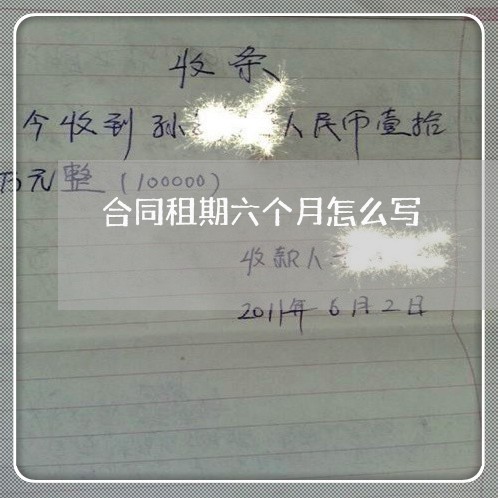 收条
今收到孙 人民币壹拾
万元整（100000）
合同租期六个月怎么写
收款人
2011年6月2日